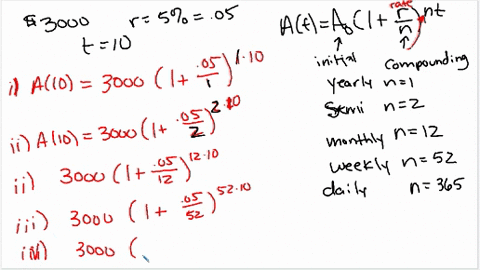 $3000 r=5% = .05
t=10
i) A(10) = 3000 (1 + .05/1)^1·10
ii) A(10) = 3000 (1 + .05/2)^2·10
ii) 3000 (1 + .05/12)^12·10
iii) 3000 (1 + .05/52)^52·10
3000 (
rate
A(t) = A₀ (1 + r/n)^nt
initial compounding
yearly n=1
n=2
monthly n=12
weekly n=52
daily n=365